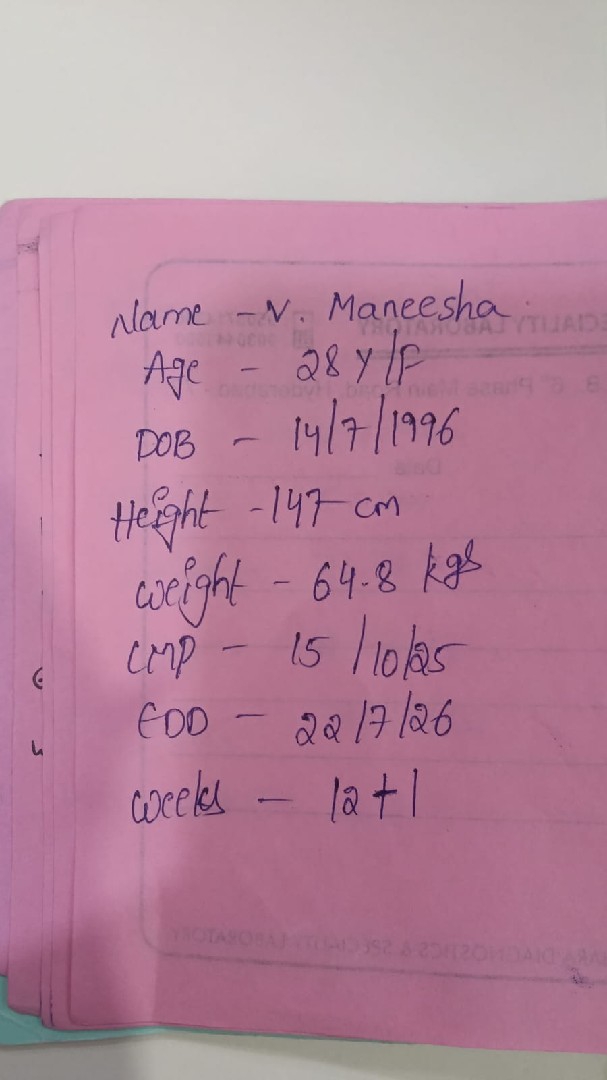 Name - N. Maneesha
Age - 28 Y/F
DOB - 14/7/1996
Height - 147 cm
weight - 64.8 kgs
LMP - 15/10/25
EDD - 22/7/26
weeks - 12+1